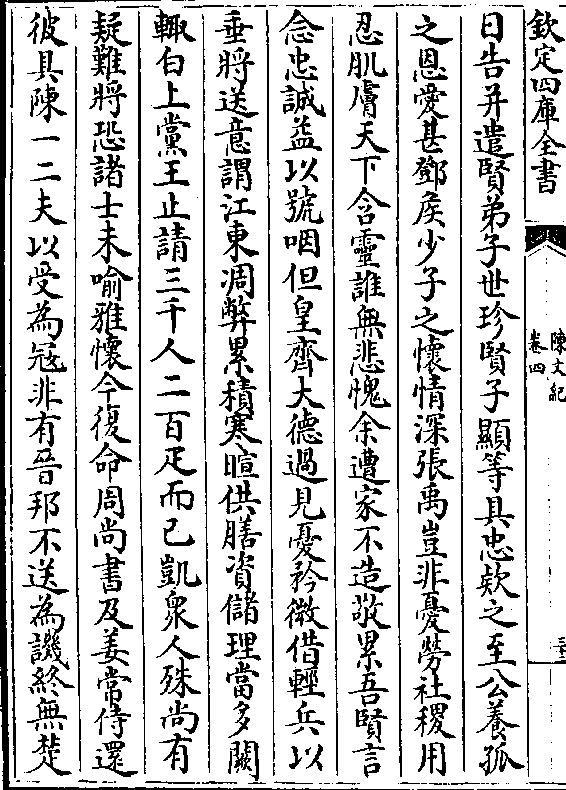 欽定四庫全書
陳文紀
卷四
日告并遣賢弟子世珍賢子顯等具忠欵之至公養孤
之恩愛甚鄧侯少子之懷情深張禹豈非憂勞社稷用
忍肌膚天下含靈誰無悲愧余遭家不造敬累吾賢言
念忠誠益以號咽但皇齊大德過見憂矜徵借輕兵以
垂將送意謂江東凋弊累積寒暄供膳資儲理當多闕
輙白上黨王止請三千人二百疋而已凱衆人殊尚有
疑難將恐諸士未喻雅懷今復命周尚書及姜常侍還
彼具陳一二夫以受為冦非有晉邦不送為譏終無楚